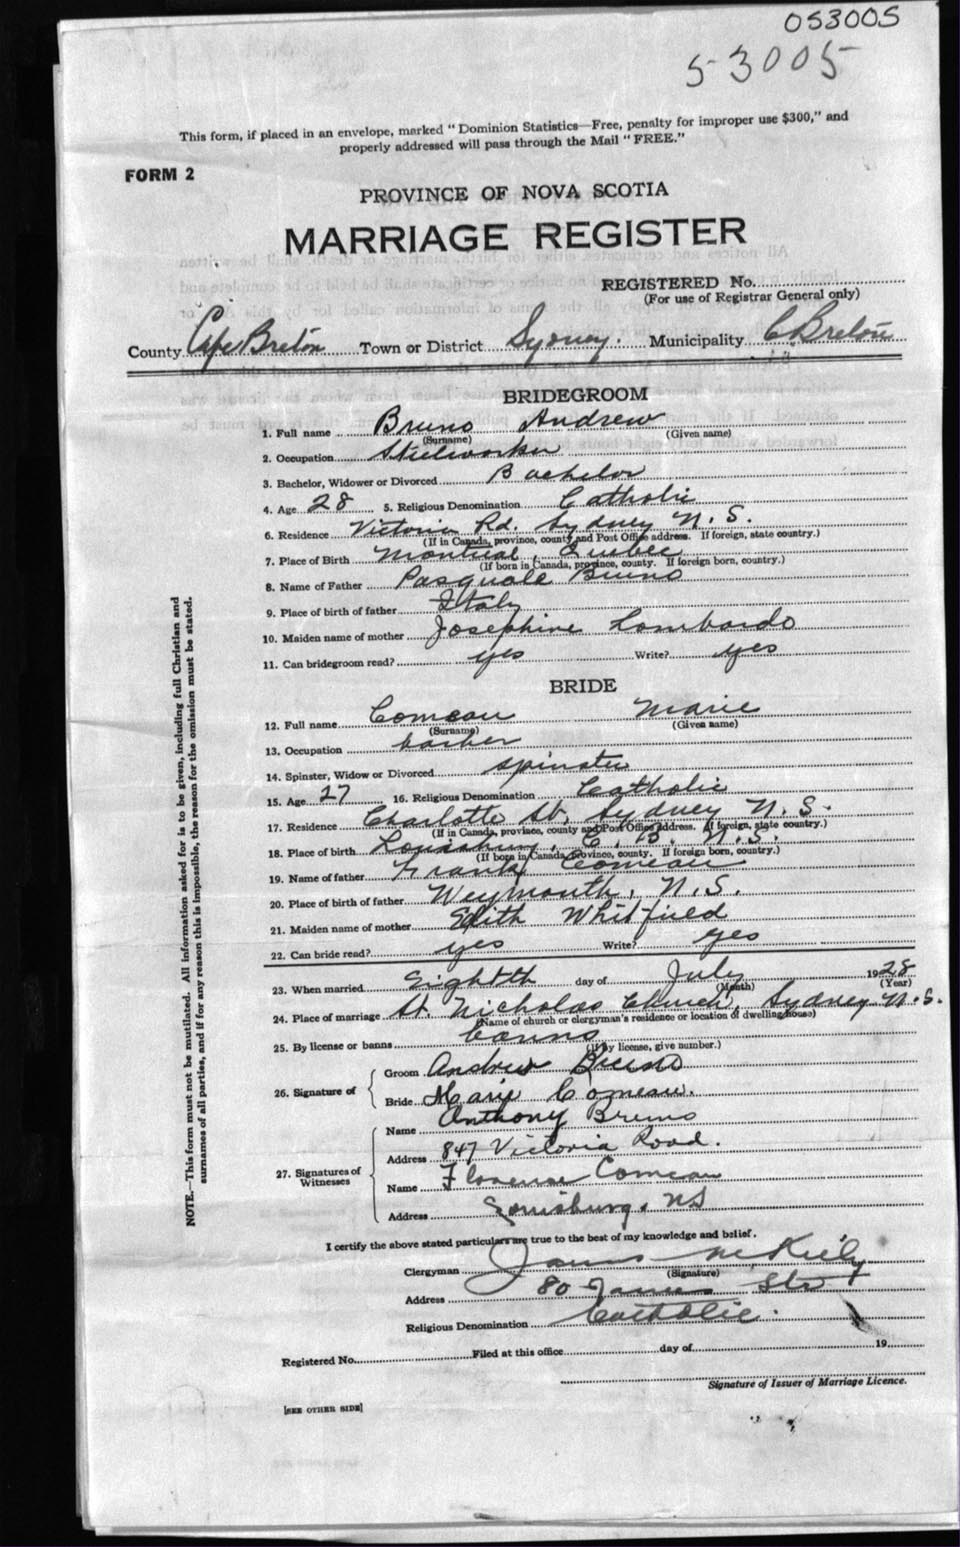 053005
53005
This form, if placed in an envelope, marked "Dominion Statistics—Free, penalty for improper use $300," and
properly addressed will pass through the Mail "FREE."
FORM 2
PROVINCE OF NOVA SCOTIA
MARRIAGE REGISTER
REGISTERED No.
(For use of Registrar General only)
County Cape Breton Town or District Sydney. Municipality C. Breton
BRIDEGROOM
1. Full name Bruno Andrew
(Surname) (Given name)
2. Occupation Steelworker
3. Bachelor, Widower or Divorced Bachelor
4. Age 28 5. Religious Denomination Catholic
6. Residence Victoria Rd. Sydney N.S.
(If in Canada, province, county and Post Office address. If foreign, state country.)
7. Place of Birth Montreal, Quebec
(If born in Canada, province, county. If foreign born, country.)
8. Name of Father Pasquale Bruno
9. Place of birth of father Italy
10. Maiden name of mother Josephine Lombardo
11. Can bridegroom read? yes Write? yes
BRIDE
12. Full name Comeau Marie
(Surname) (Given name)
13. Occupation barber
14. Spinster, Widow or Divorced spinster
15. Age 27 16. Religious Denomination Catholic
17. Residence Charlotte St. Sydney N.S.
(If in Canada, province, county and Post Office address. If foreign, state country.)
18. Place of birth Louisburg, C.B. N.S.
(If born in Canada, Province, county. If foreign born, country.)
19. Name of father Frank Comeau
20. Place of birth of father Weymouth, N.S.
21. Maiden name of mother Edith Whitfired
22. Can bride read? yes Write? yes
23. When married Eighth day of July 1928
(Month) (Year)
24. Place of marriage St. Nicholas Church, Sydney N.S.
(Name of church or clergyman's residence or location of dwelling house)
25. By license or banns banns
(If by license, give number.)
26. Signature of
Groom Andrew Bruno
Bride Marie Comeau.
27. Signatures of Witnesses
Name Anthony Bruno
Address 847 Victoria Road.
Name Florence Comeau
Address Louisburg, NS
I certify the above stated particulars are true to the best of my knowledge and belief.
Clergyman James McKiely
(Signature)
Address 80 James Str
Religious Denomination Catholic.
Registered No. Filed at this office day of 19
Signature of Issuer of Marriage Licence.
[SEE OTHER SIDE]
NOTE.—This form must not be mutilated. All information asked for is to be given, including full Christian and
surnames of all parties, and if for any reason this is impossible, the reason for the omission must be stated.